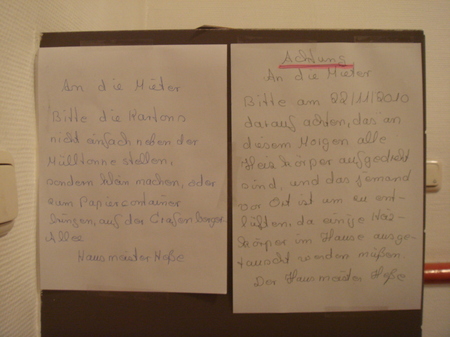 An die Mieter
Bitte die Kartons
nicht einfach neben der
Mülltonne stellen,
sondern klein machen, oder
zum Papiercontainer
bringen, auf der Grafenberger
Allee
Hausmeister Hoße
Achtung
An die Mieter
Bitte am 22/11/2010
darauf achten, das an
diesem Morgen alle
Heizkörper aufgedreht
sind, und das jemand
vor Ort ist um zu ent-
lüften, da einige Heiz-
körper im Hause ausge-
tauscht werden müßen.
Der Hausmeister Hoße